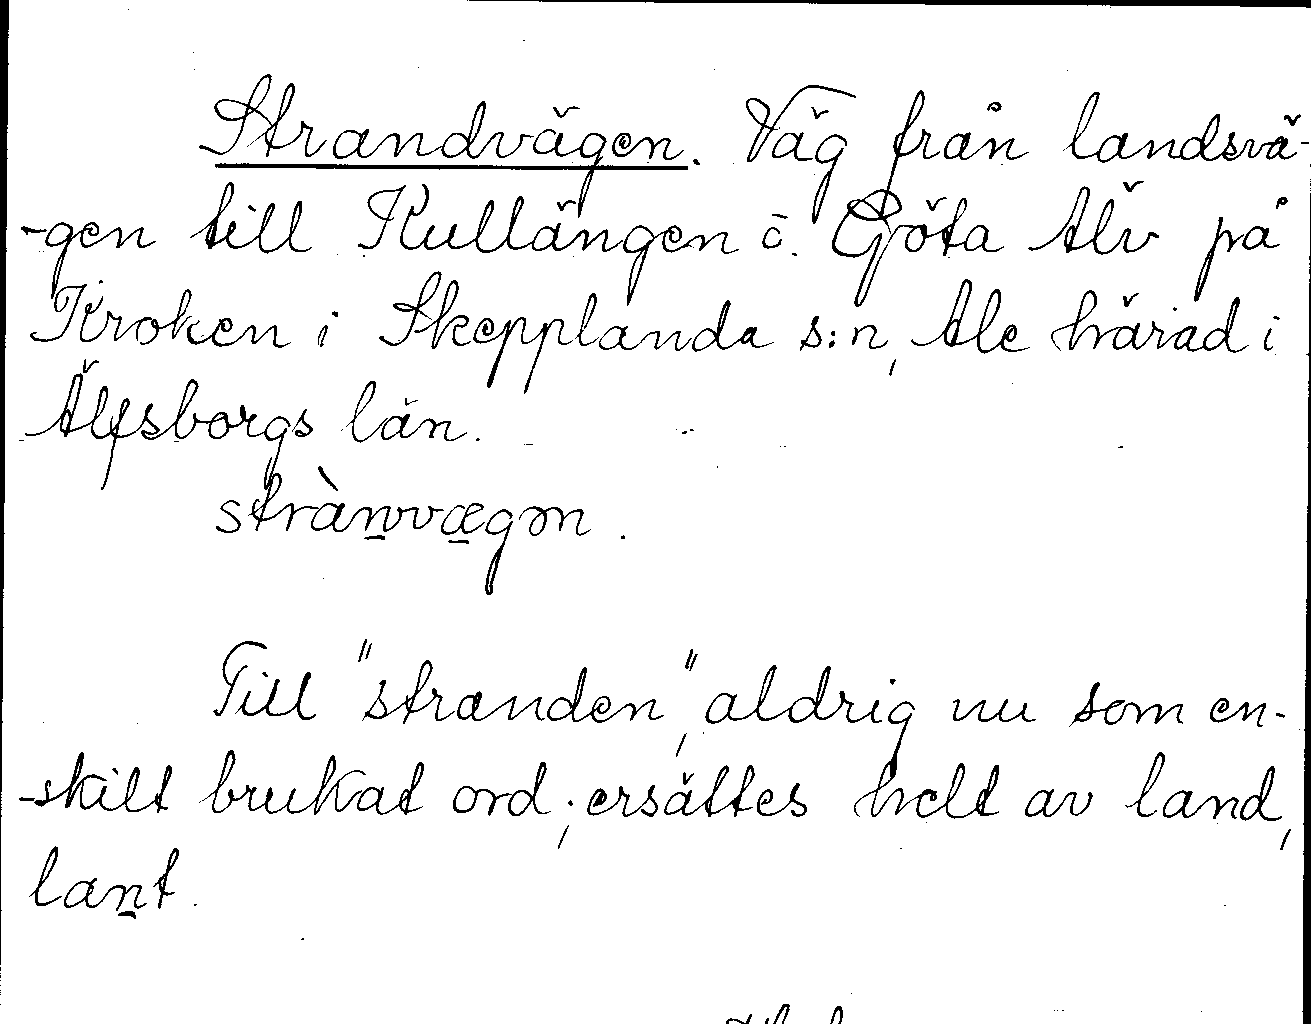 Strandvägen. Väg från landsvä-
-gen till Kullängen o. Göta Älv på
Kroken i Skepplanda s:n, Ale härad i
Älfsborgs län.
strànvvægən.
Till "stranden", aldrig nu som en-
-skilt brukat ord; ersättes helt av land,
lant.